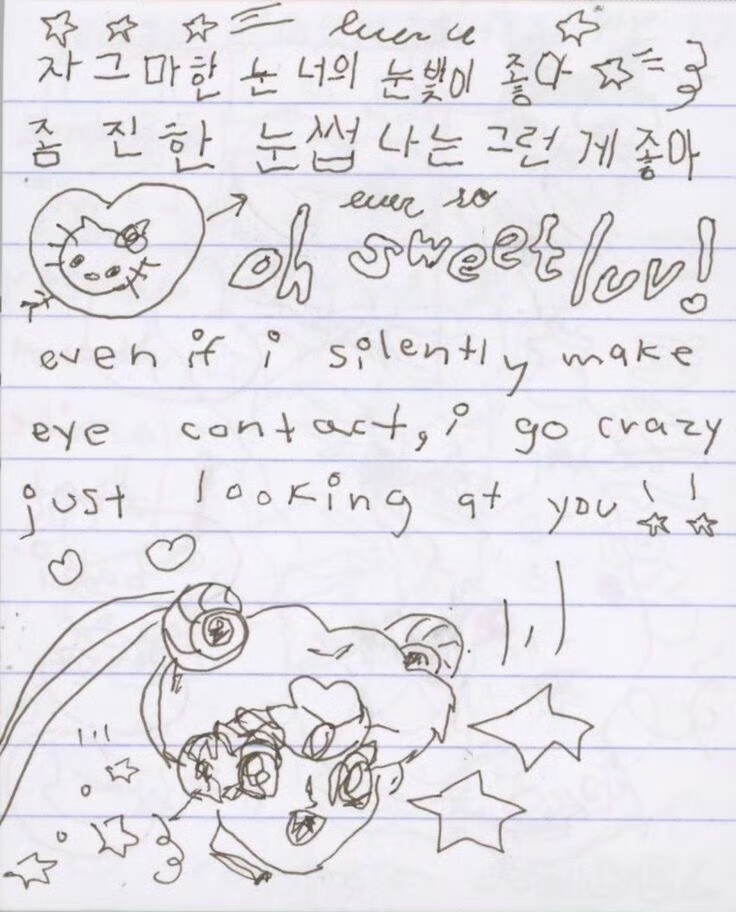 자그마한 눈 너의 눈빛이 좋아
좀 진한 눈썹 나는 그런 게 좋아
ever so
oh sweet luv!
even if i silently make
eye contact, i go crazy
just looking at you